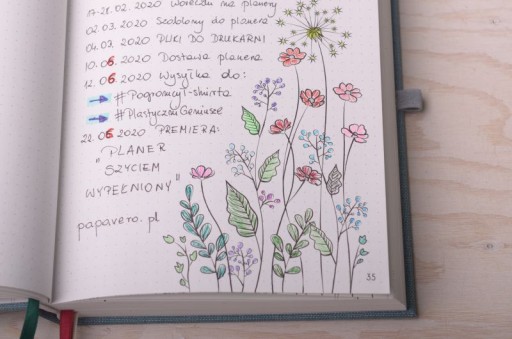 17-28.02.2020 Woreczki na planery
02.03.2020 Szablony do planera
04.03.2020 PLIKI DO DRUKARNI
10.06.2020 Dostawa planera
12.06.2020 Wysyłka do:
#Pogromcy1-świata
#PlastyczniGeniusze
22.06.2020 PREMIERA:
"PLANER
SZYCIEM
WYPEŁNIONY"
papavero.pl
35